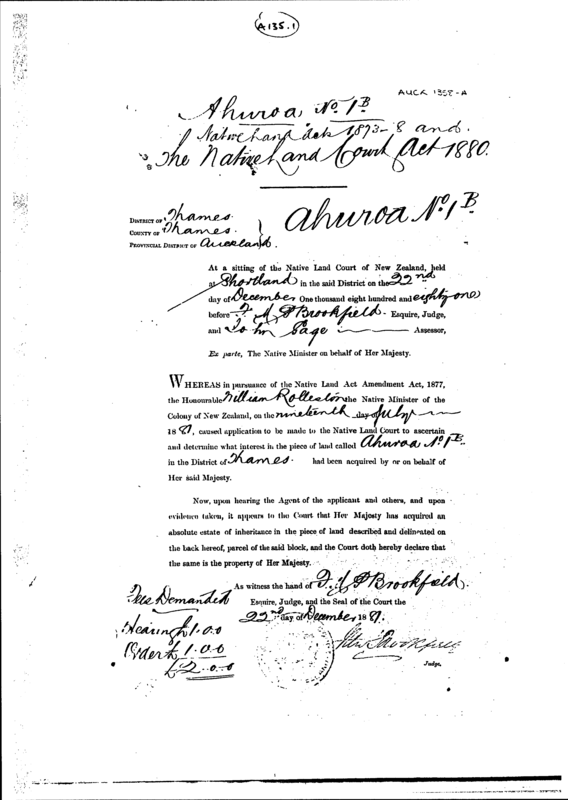 A135.1
AUCK 1358-A
Ahuroa No. 1B
Native Land Acts 1873-8 and
The Native Land Court Act 1880.
DISTRICT OF Thames.
COUNTY OF Thames.
PROVINCIAL DISTRICT OF Auckland.
Ahuroa No. 1B.
At a sitting of the Native Land Court of New Zealand, held
at Shortland in the said District on the 22nd
day of December One thousand eight hundred and eighty one
before Brookfield - Esquire, Judge,
and Page Assessor,
Ex parte, The Native Minister on behalf of Her Majesty.
WHEREAS in pursuance of the Native Land Act Amendment Act, 1877,
the Honourable William Rolleston the Native Minister of the
Colony of New Zealand, on the nineteenth day of July
1881, caused application to be made to the Native Land Court to ascertain
and determine what interest in the piece of land called Ahuroa No. 1B
in the District of Thames. had been acquired by or on behalf of
Her said Majesty.
Now, upon hearing the Agent of the applicant and others, and upon
evidence taken, it appears to the Court that Her Majesty has acquired an
absolute estate of inheritance in the piece of land described and delineated on
the back hereof, parcel of the said block, and the Court doth hereby declare that
the same is the property of Her Majesty.
As witness the hand of Brookfield.
Esquire, Judge, and the Seal of the Court the
22nd day of December 1881.
Fees Demanded
Hearing £1.0.0
Order £1.0.0
£2.0.0
Brookfield
Judge.